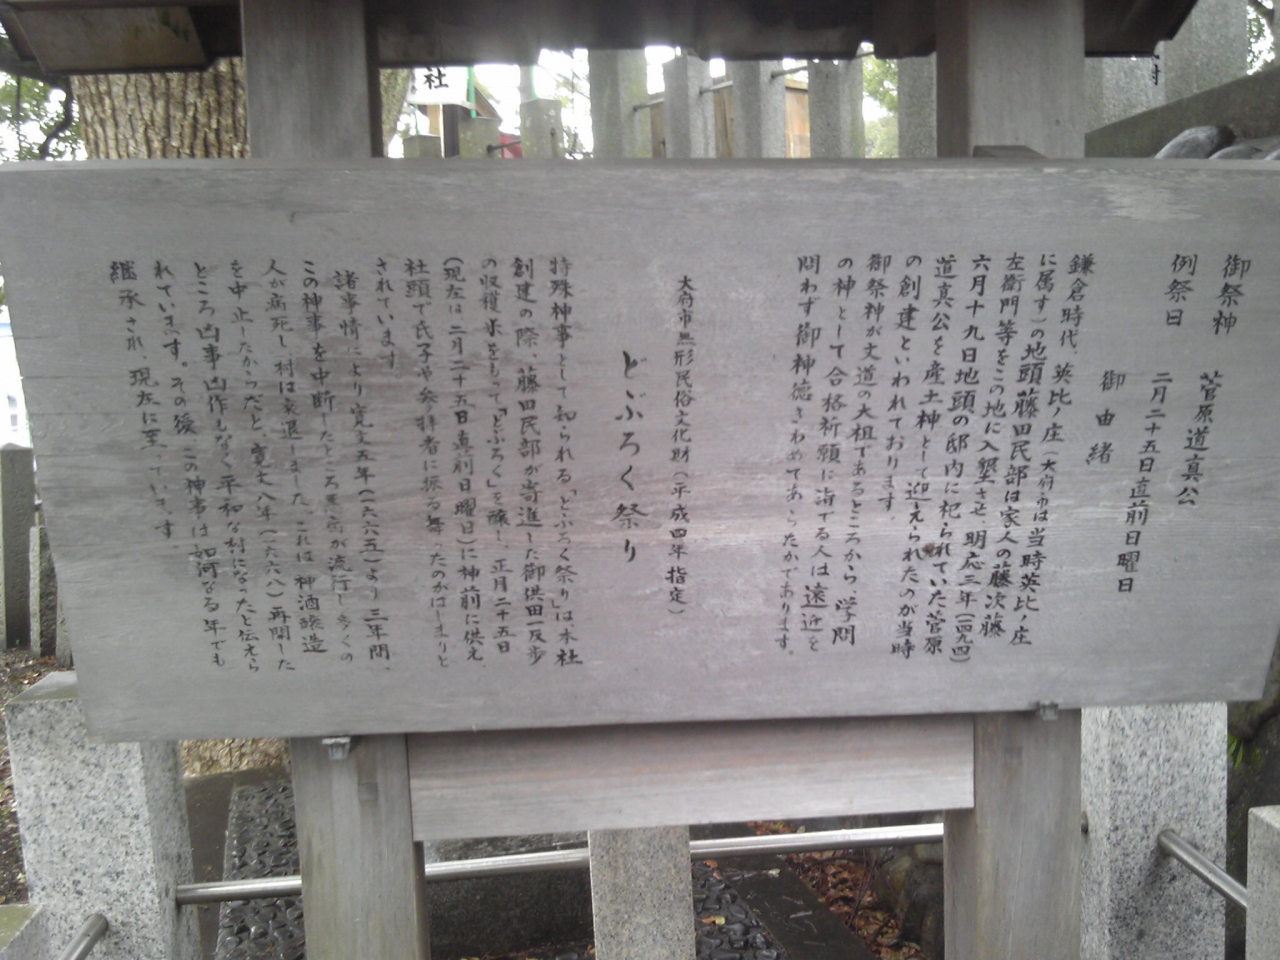 社
御祭神　菅原道真公
例祭日　二月二十五日直前日曜日
御由緒
鎌倉時代、英比ノ庄(大府市は当時英比ノ庄
に属す)の地頭藤田民部は家人の藤次藤
左衛門等をこの地に入墾させ、明応三年(一四九四)
六月十九日地頭の邸内に祀られていた菅原
道真公を産土神として迎えられたのが当時
の創建といわれております。
御祭神が文道の大祖であるところから、学問
の神として合格祈願に詣でる人は遠近を
問わず御神徳きわめてあらたかであります。
大府市無形民俗文化財(平成四年指定)
どぶろく祭り
特殊神事として知られる「どぶろく祭り」は、本社
創建の際、藤田民部が寄進した御供田一反歩
の収穫米をもって「どぶろく」を醸し、正月二十五日
(現在は二月二十五日直前日曜日)に神前に供え、
社頭で氏子や参拝者に振る舞ったのがはじまりと
されています。
諸事情により寛文五年(一六六五)より三年間、
この神事を中断したところ悪病が流行し多くの
人が病死し、村は衰退しました。これは神酒醸造
を中止したからだと、寛文八年(一六六八)再開した
ところ凶事凶作もなく平和な村になったと伝えら
れています。その後、この神事は如何なる年でも
継承され、現在に至っています。